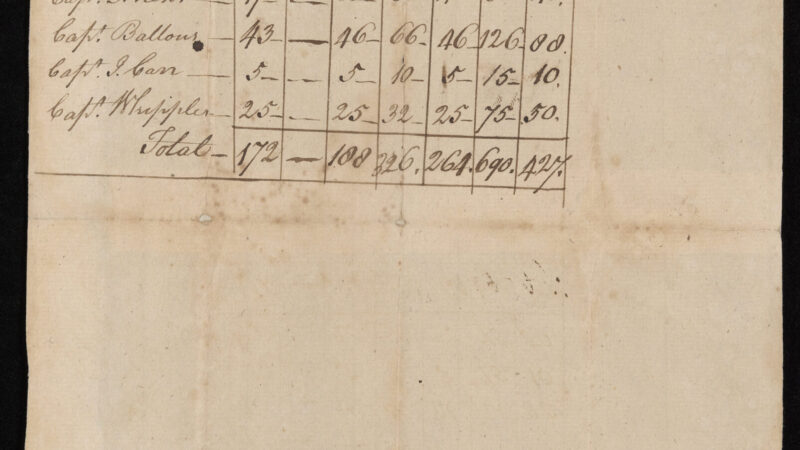 Capt. Ballous — 43 — 46 — 66 — 46 — 126 — 88.
Capt. J. Carr — 5 — — 5 — 10 — 5 — 15 — 10.
Capt. Whipples — 25 — — 25 — 32 — 25 — 75 — 50.
Total — 172 — 188 326. 264. 690. 427.